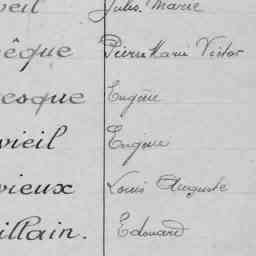 veil Jules. Marie
êque Pierre Marie Victor
esque Eugène
vieil Eugène
vieux Louis Auguste
illain. Edouard